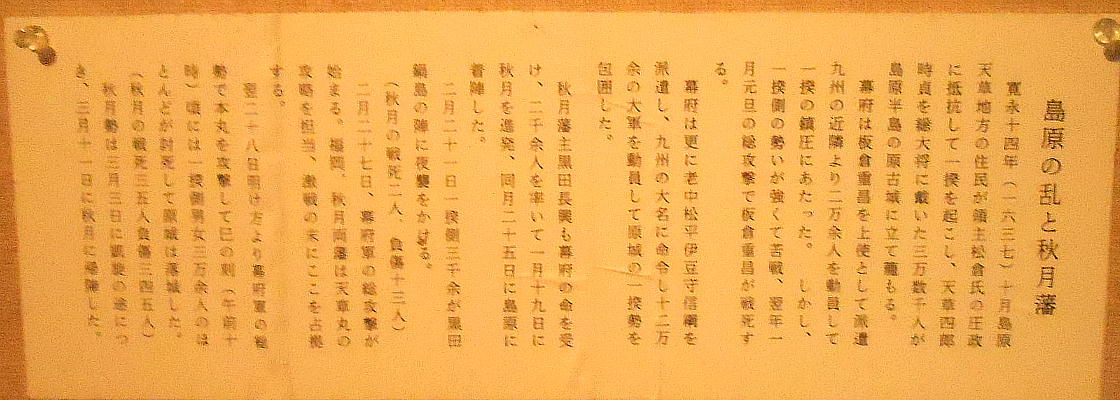 島原の乱と秋月藩
寛永十四年（一六三七）十月島原
天草地方の住民が領主松倉氏の圧政
に抵抗して一揆を起こし、天草四郎
時貞を総大将に戴いた三万数千人が
島原半島の原古城に立て籠もる。
幕府は板倉重昌を上使として派遣
九州の近隣より二万余人を動員して
一揆の鎮圧にあたった。しかし、
一揆側の勢いが強くて苦戦、翌年一
月元旦の総攻撃で板倉重昌が戦死す
る。
幕府は更に老中松平伊豆守信綱を
派遣し、九州の大名に命令し十二万
余の大軍を動員して原城の一揆勢を
包囲した。
秋月藩主黒田長興も幕府の命を受
け、二千余人を率いて一月十九日に
秋月を進発、同月二十五日に島原に
着陣した。
二月二十一日一揆側三千余が黒田
鍋島の陣に夜襲をかける。
（秋月の戦死二人、負傷十三人）
二月二十七日、幕府軍の総攻撃が
始まる。福岡、秋月両藩は天草丸の
攻略を担当、激戦の末にここを占拠
する。
翌二十八日明け方より幕府軍の総
勢で本丸を攻撃して巳の刻（午前十
時）頃には一揆側男女三万余人のほ
とんどが討死して原城は落城した。
（秋月の戦死三五人負傷三四五人）
秋月勢は三月三日に凱旋の途につ
き、三月十一日に秋月に帰陣した。